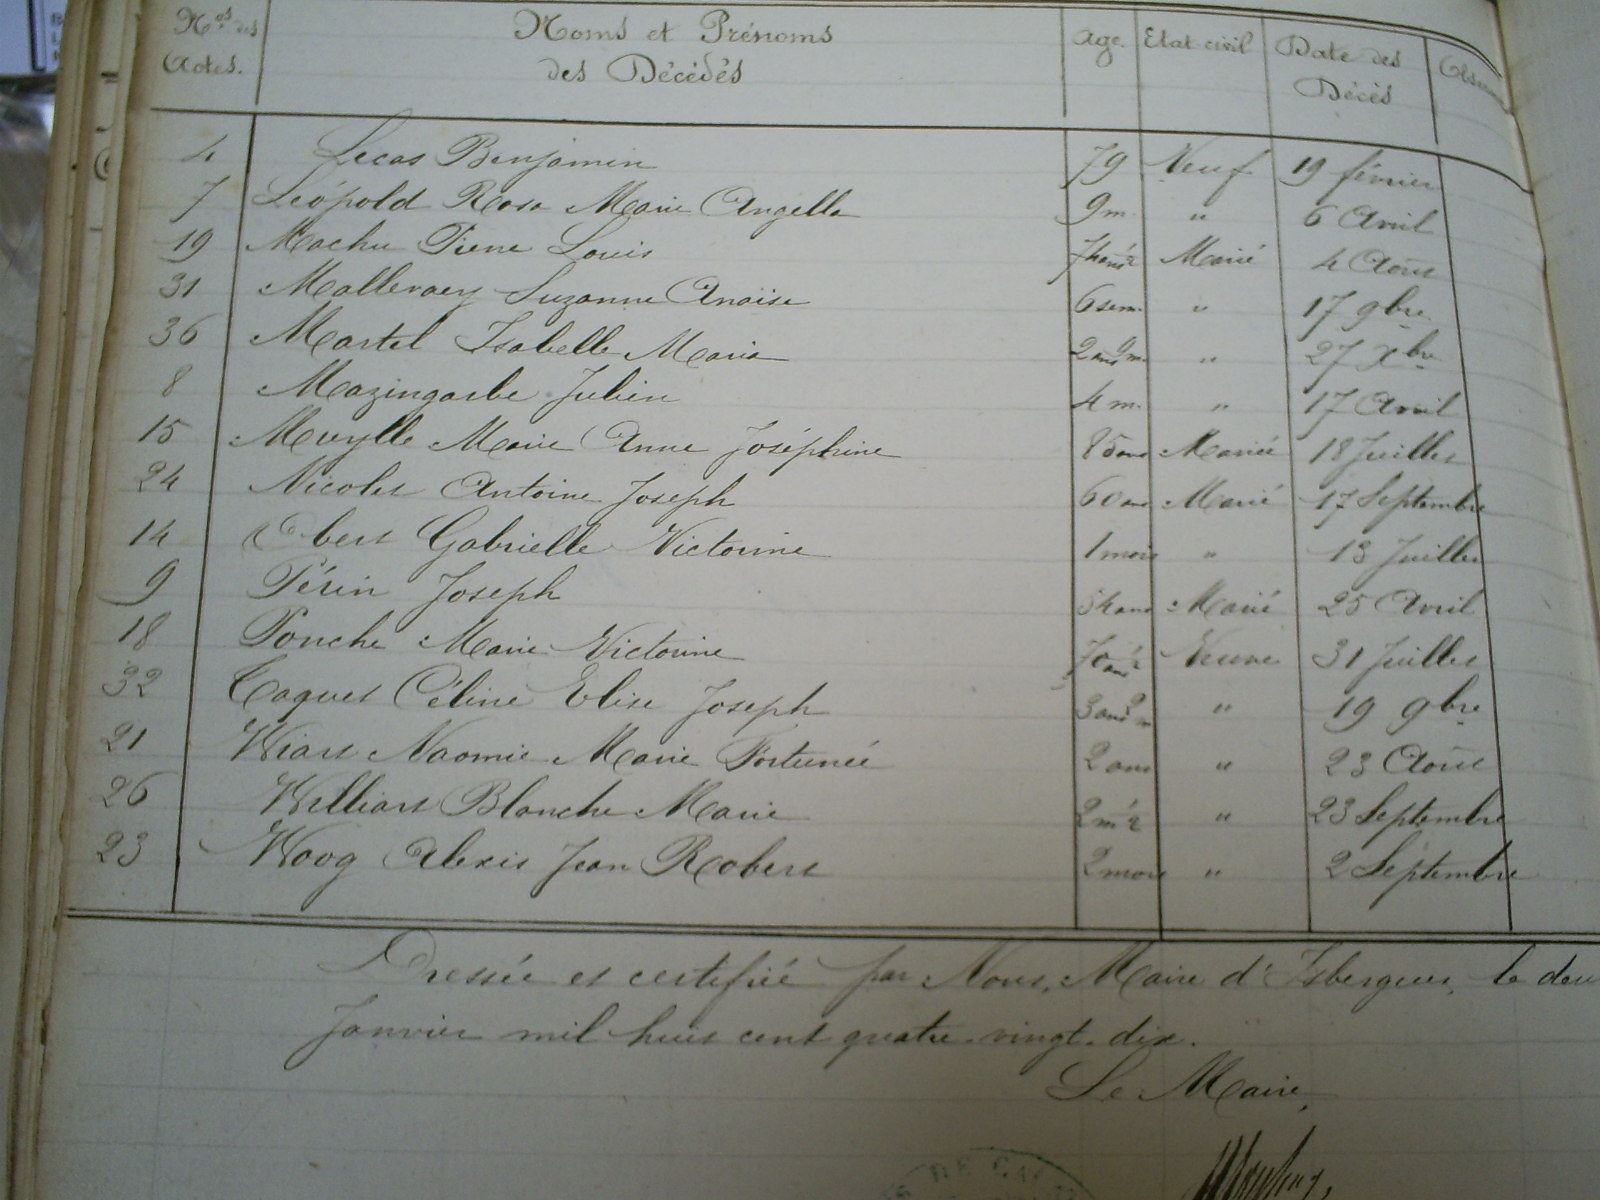 Nos des Actes. Noms et Prénoms des Décédés Age. Etat civil Date des Décès
4 Lecas Benjamin 79 Veuf 19 février
7 Léopold Rosa Marie Angella 9 m. " 6 Avril
19 Machu Pierre Louis Marié 4 Août
31 Mallevaey Suzanne Anaïse 6 sem. " 17 9bre
36 Martel Isabelle Maria 2 ans 9 m. " 27 Xbre
8 Mazingarbe Julien 4 m. " 17 Avril
15 Merylle Marie Anne Joséphine 85 ans Mariée 18 Juillet
24 Nicolet Antoine Joseph 60 ans Marié 17 Septembre
14 Obert Gabrielle Victorine 1 mois " 13 Juillet
9 Périn Joseph 54 ans Marié 25 Avril
18 Ponche Marie Victorine 70 ans ½ Veuve 31 Juillet
32 Caquet Céline Elise Joseph 3 ans 2 m " 19 9bre
21 Wiart Naomie Marie Fortunée 2 ans " 23 Août
26 Williart Blanche Marie 2 m ½ " 23 Septembre
23 Woog Alexis Jean Robert 2 mois " 2 Septembre
Dressée et certifiée par Nous, Maire d'Isbergues, le deu
Janvier mil huit cent quatre-vingt-dix.
Le Maire,